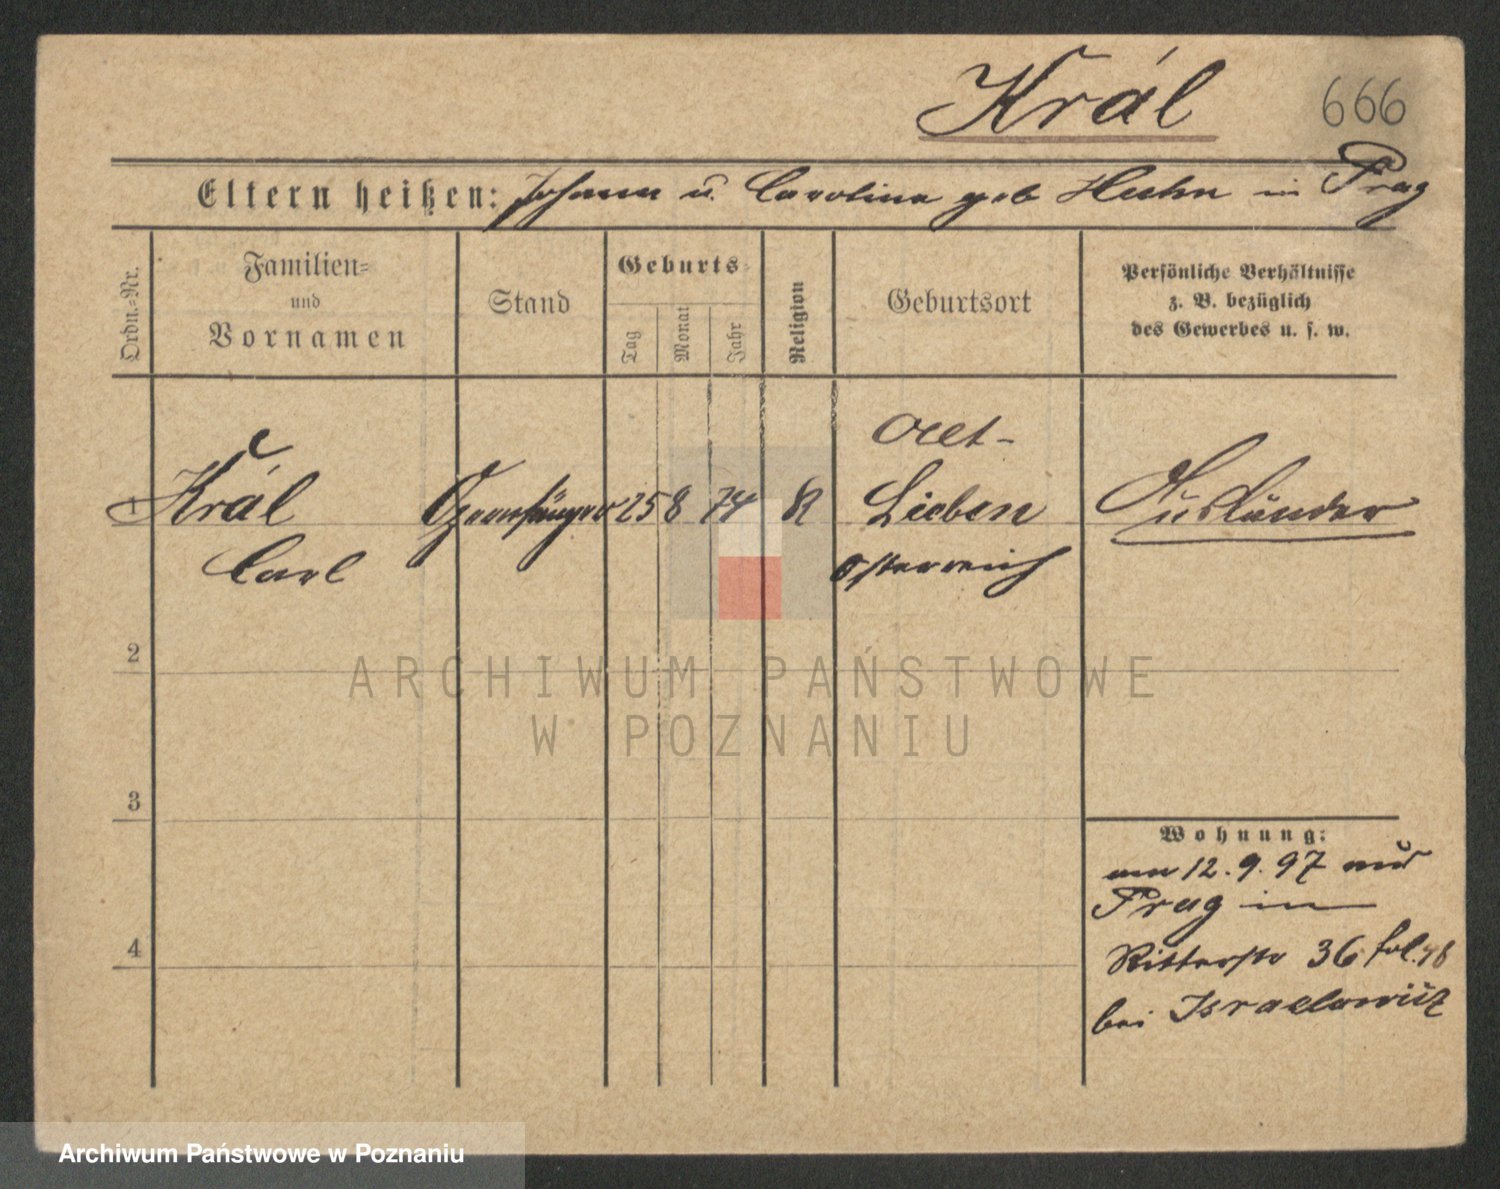 Král
666
Eltern heißen: Johann u. Carolina geb Huhn in Prag
Ordn.-Nr.
Familien-
und
Vornamen
Stand
Geburts-
Tag
Monat
Jahr
Religion
Geburtsort
Persönliche Verhältnisse
z. B. bezüglich
des Gewerbes u. s. w.
1 Král Opernsänger 25 8 74 K
Carl
Alt-
Lieben
Österreich
Ausländer
2
ARCHIWUM PAŃSTWOWE
W POZNANIU
3
4
Wohnung:
am 12. 9. 97 aus
Prag in
Ritterstr 36 fol.
bei Israelowicz
Archiwum Państwowe w Poznaniu